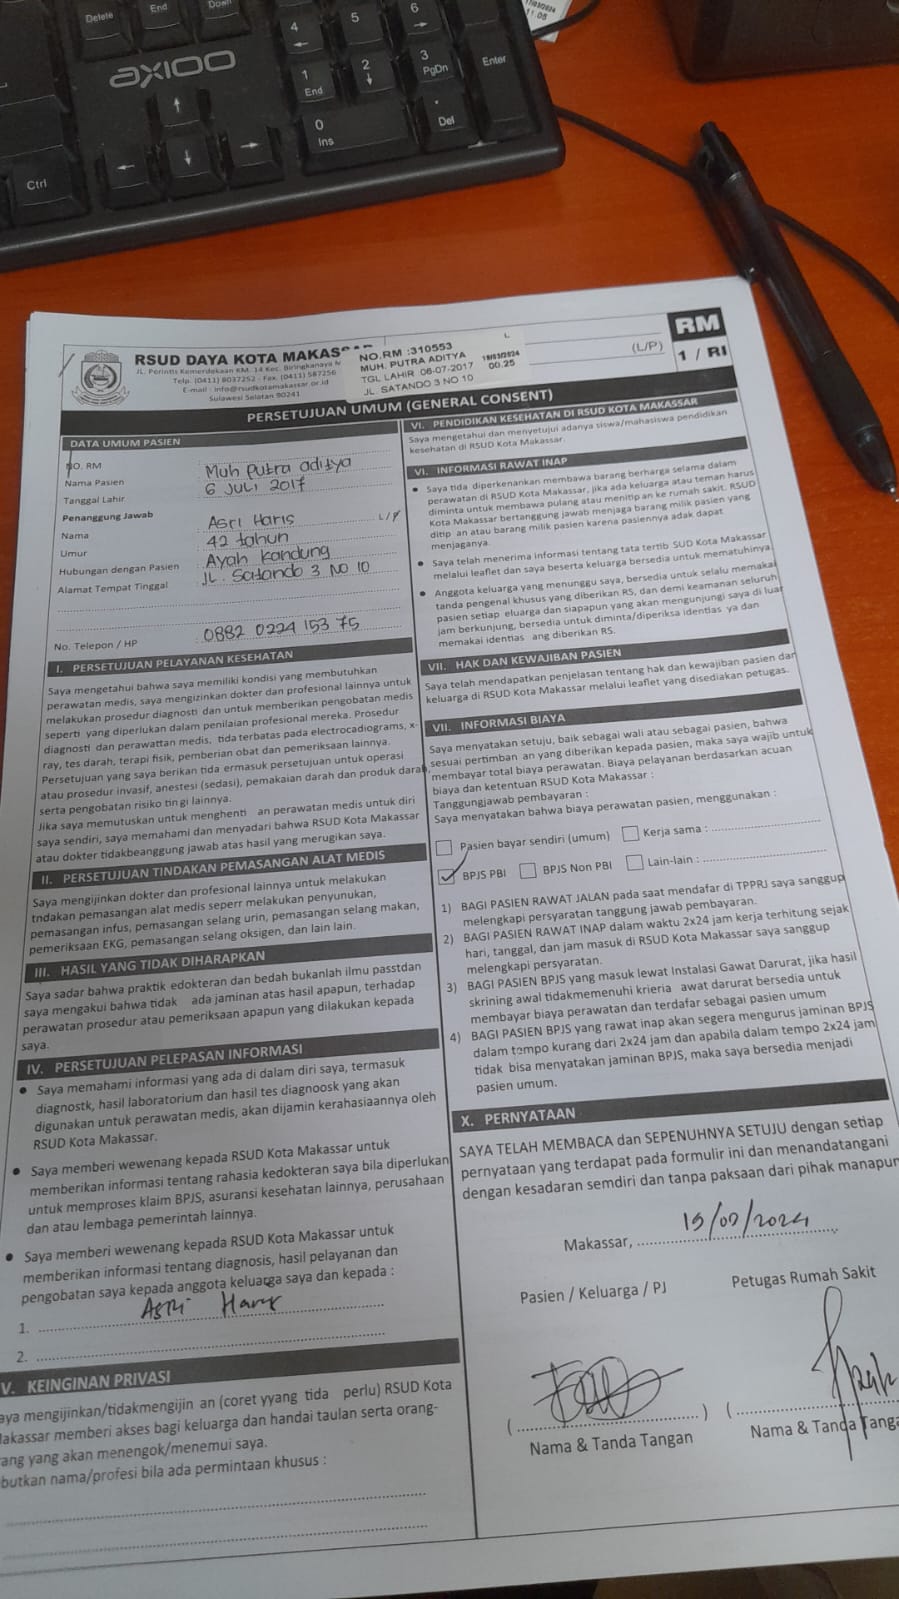 Delete
End
Down
4
5
6
1
End
2
3
PgDn
Enter
0
Ins
.
Del
Ctrl
AXIOO
11.05
RM
1 / RI
(L/P)
RSUD DAYA KOTA MAKAS
JL. Perintis Kemerdekaan KM. 14 Kec. Biringkanaya
Telp. (0411) 8037252 - Fax. (0411) 587256
E-mail : info@rsudkotamakassar.or.id
Sulawesi Selatan 90241
L
NO.RM :310553
MUH. PUTRA ADITYA
TGL LAHIR 06-07-2017
JL. SATANDO 3 NO 10
00.25
PERSETUJUAN UMUM (GENERAL CONSENT)
DATA UMUM PASIEN
NO. RM
Nama Pasien Muh Putra aditya
Tanggal Lahir 6 JULI 2017
Penanggung Jawab
Nama Asri Haris L/P
Umur 42 tahun
Hubungan dengan Pasien Ayah Kandung
Alamat Tempat Tinggal JL. Satando 3 NO 10
No. Telepon / HP 0882 0224 153 75
I. PERSETUJUAN PELAYANAN KESEHATAN
Saya mengetahui bahwa saya memiliki kondisi yang membutuhkan
perawatan medis, saya mengizinkan dokter dan profesional lainnya untuk
melakukan prosedur diagnosti dan untuk memberikan pengobatan medis
seperti yang diperlukan dalam penilaian profesional mereka. Prosedur
diagnosti dan perawattan medis, tida terbatas pada electrocadiograms, x-
ray, tes darah, terapi fisik, pemberian obat dan pemeriksaan lainnya.
Persetujuan yang saya berikan tida ermasuk persetujuan untuk operasi
atau prosedur invasif, anestesi (sedasi), pemakaian darah dan produk darah,
serta pengobatan risiko tin gi lainnya.
Jika saya memutuskan untuk menghenti an perawatan medis untuk diri
saya sendiri, saya memahami dan menyadari bahwa RSUD Kota Makassar
atau dokter tidakbeanggung jawab atas hasil yang merugikan saya.
II. PERSETUJUAN TINDAKAN PEMASANGAN ALAT MEDIS
Saya mengijinkan dokter dan profesional lainnya untuk melakukan
tndakan pemasangan alat medis seperr melakukan penyunukan,
pemasangan infus, pemasangan selang urin, pemasangan selang makan,
pemeriksaan EKG, pemasangan selang oksigen, dan lain lain.
III. HASIL YANG TIDAK DIHARAPKAN
Saya sadar bahwa praktik edokteran dan bedah bukanlah ilmu passtdan
saya mengakui bahwa tidak ada jaminan atas hasil apapun, terhadap
perawatan prosedur atau pemeriksaan apapun yang dilakukan kepada
saya.
IV. PERSETUJUAN PELEPASAN INFORMASI
• Saya memahami informasi yang ada di dalam diri saya, termasuk
diagnostk, hasil laboratorium dan hasil tes diagnoosk yang akan
digunakan untuk perawatan medis, akan dijamin kerahasiaannya oleh
RSUD Kota Makassar.
• Saya memberi wewenang kepada RSUD Kota Makassar untuk
memberikan informasi tentang rahasia kedokteran saya bila diperlukan
untuk memproses klaim BPJS, asuransi kesehatan lainnya, perusahaan
dan atau lembaga pemerintah lainnya.
• Saya memberi wewenang kepada RSUD Kota Makassar untuk
memberikan informasi tentang diagnosis, hasil pelayanan dan
pengobatan saya kepada anggota keluarga saya dan kepada :
1. Asri Haris
2.
V. KEINGINAN PRIVASI
aya mengijinkan/tidakmengijin an (coret yyang tida perlu) RSUD Kota
Makassar memberi akses bagi keluarga dan handai taulan serta orang-
rang yang akan menengok/menemui saya.
butkan nama/profesi bila ada permintaan khusus :
VI. PENDIDIKAN KESEHATAN DI RSUD KOTA MAKASSAR
Saya mengetahui dan menyetujui adanya siswa/mahasiswa pendidikan
kesehatan di RSUD Kota Makassar.
VI. INFORMASI RAWAT INAP
• Saya tida diperkenankan membawa barang berharga selama dalam
perawatan di RSUD Kota Makassar, jika ada keluarga atau teman harus
diminta untuk membawa pulang atau menitip an ke rumah sakit. RSUD
Kota Makassar bertanggung jawab menjaga barang milik pasien yang
ditip an atau barang milik pasien karena pasiennya adak dapat
menjaganya.
• Saya telah menerima informasi tentang tata tertib SUD Kota Makassar
melalui leaflet dan saya beserta keluarga bersedia untuk mematuhinya.
• Anggota keluarga yang menunggu saya, bersedia untuk selalu memakai
tanda pengenal khusus yang diberikan RS, dan demi keamanan seluruh
pasien setiap eluarga dan siapapun yang akan mengunjungi saya di luar
jam berkunjung, bersedia untuk diminta/diperiksa identias ya dan
memakai identias ang diberikan RS.
VII. HAK DAN KEWAJIBAN PASIEN
Saya telah mendapatkan penjelasan tentang hak dan kewajiban pasien dan
keluarga di RSUD Kota Makassar melalui leaflet yang disediakan petugas.
VII. INFORMASI BIAYA
Saya menyatakan setuju, baik sebagai wali atau sebagai pasien, bahwa
sesuai pertimban an yang diberikan kepada pasien, maka saya wajib untuk
membayar total biaya perawatan. Biaya pelayanan berdasarkan acuan
biaya dan ketentuan RSUD Kota Makassar :
Tanggungjawab pembayaran :
Saya menyatakan bahwa biaya perawatan pasien, menggunakan :
Pasien bayar sendiri (umum) Kerja sama :
BPJS PBI BPJS Non PBI Lain-lain :
1) BAGI PASIEN RAWAT JALAN pada saat mendafar di TPPRJ saya sanggup
melengkapi persyaratan tanggung jawab pembayaran.
2) BAGI PASIEN RAWAT INAP dalam waktu 2x24 jam kerja terhitung sejak
hari, tanggal, dan jam masuk di RSUD Kota Makassar saya sanggup
melengkapi persyaratan.
3) BAGI PASIEN BPJS yang masuk lewat Instalasi Gawat Darurat, jika hasil
skrining awal tidakmemenuhi krieria awat darurat bersedia untuk
membayar biaya perawatan dan terdafar sebagai pasien umum
4) BAGI PASIEN BPJS yang rawat inap akan segera mengurus jaminan BPJS
dalam tempo kurang dari 2x24 jam dan apabila dalam tempo 2x24 jam
tidak bisa menyatakan jaminan BPJS, maka saya bersedia menjadi
pasien umum.
X. PERNYATAAN
SAYA TELAH MEMBACA dan SEPENUHNYA SETUJU dengan setiap
pernyataan yang terdapat pada formulir ini dan menandatangani
dengan kesadaran semdiri dan tanpa paksaan dari pihak manapun
Makassar,
Pasien / Keluarga / PJ Petugas Rumah Sakit
Nama & Tanda Tangan Nama & Tanda Tanga